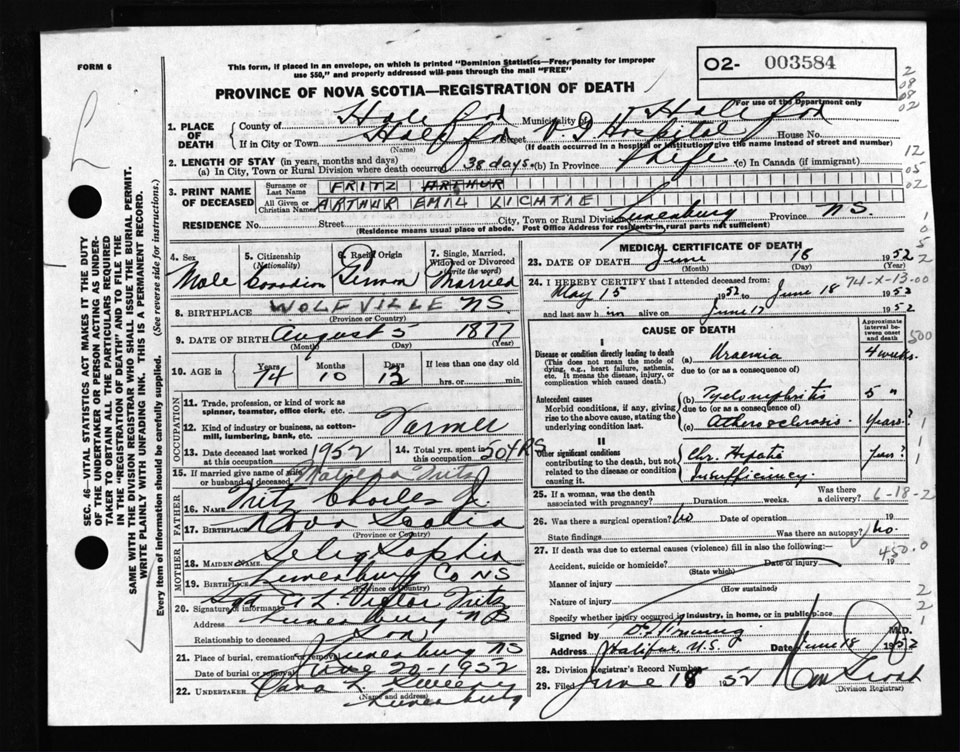 FORM 6
This form, if placed in an envelope, on which is printed "Dominion Statistics—Free, penalty for improper
use $50," and properly addressed will pass through the mail "FREE"
O2- 003584
For use of the Department only
PROVINCE OF NOVA SCOTIA—REGISTRATION OF DEATH
1. PLACE OF DEATH
County of Halifax Municipality of Halifax
If in City or Town Halifax Street V.G. Hospital House No.
(Name) (If death occurred in a hospital or institution, give the name instead of street and number)
2. LENGTH OF STAY (in years, months and days)
(a) In City, Town or Rural Division where death occurred 38 days (b) In Province Life (c) In Canada (if immigrant)
3. PRINT NAME OF DECEASED
Surname or Last Name FRITZ ARTHUR
All Given or Christian Names ARTHUR EMIL LICHTIE
RESIDENCE No. Street City, Town or Rural Division Lunenburg Province N.S.
(Residence means usual place of abode. Post Office Address for residents in rural parts not sufficient)
4. Sex Male
5. Citizenship (Nationality) Canadian
6. Racial Origin German
7. Single, Married, Widowed or Divorced (write the word) Married
8. BIRTHPLACE WOLFVILLE NS.
(Province or Country)
9. DATE OF BIRTH August 5 1877
(Month) (Day) (Year)
10. AGE in Years 74 Months 10 Days 12 If less than one day old hrs. or min.
OCCUPATION
11. Trade, profession, or kind of work as spinner, teamster, office clerk, etc.
12. Kind of industry or business, as cotton-mill, lumbering, bank, etc. Farmer
13. Date deceased last worked at this occupation 1952
14. Total yrs. spent in this occupation 50 YRS
15. If married give name of wife or husband of deceased Matilda Fritz
FATHER
16. NAME Fritz Charles J.
17. BIRTHPLACE Nova Scotia
(Province or Country)
MOTHER
18. MAIDEN NAME Selig Sophia
19. BIRTHPLACE Lunenburg Co NS
(Province or Country)
20. Signature of informant Sgd A L. Victor Fritz
Address Lunenburg NS
Relationship to deceased Son
21. Place of burial, cremation or removal Lunenburg NS
Date of burial or removal June 20-1952
22. UNDERTAKER Sweeny
(Name and address) Lunenburg
MEDICAL CERTIFICATE OF DEATH
23. DATE OF DEATH June 18 1952
(Month) (Day) (Year)
24. I HEREBY CERTIFY that I attended deceased from:
74-X-13-00
May 15 1952 to June 18 1952
and last saw him alive on June 17 1952
CAUSE OF DEATH
Approximate interval between onset and death
I
Disease or condition directly leading to death
(This does not mean the mode of dying, e.g., heart failure, asthenia, etc. It means the disease, injury, or complication which caused death.)
(a) Uraemia 4 weeks
due to (or as a consequence of)
Antecedent causes
Morbid conditions, if any, giving rise to the above cause, stating the underlying condition last.
(b) Pyelonephritis 5 "
due to (or as a consequence of)
(c) Atherosclerosis years?
II
Other significant conditions
contributing to the death, but not related to the disease or condition causing it.
Chr. Hepatic Insufficiency years?
25. If a woman, was the death associated with pregnancy? Duration weeks. Was there a delivery?
6-18-2
26. Was there a surgical operation? No Date of operation 19
State findings Was there an autopsy? No.
27. If death was due to external causes (violence) fill in also the following:—
450.0
Accident, suicide or homicide? Date of injury 19
(State which)
Manner of injury
(How sustained)
Nature of injury
Specify whether injury occurred in industry, in home, or in public place
Signed by M.D.
Address Halifax, N.S. Date June 18 1952
28. Division Registrar's Record Number
29. Filed June 18 1952
(Division Registrar)
SEC. 46—VITAL STATISTICS ACT MAKES IT THE DUTY
OF THE UNDERTAKER OR PERSON ACTING AS UNDERTAKER TO OBTAIN ALL THE PARTICULARS REQUIRED
IN THE "REGISTRATION OF DEATH" AND TO FILE THE
SAME WITH THE DIVISION REGISTRAR WHO SHALL ISSUE THE BURIAL PERMIT.
WRITE PLAINLY WITH UNFADING INK. THIS IS A PERMANENT RECORD.
Every item of information should be carefully supplied. (See reverse side for instructions.)